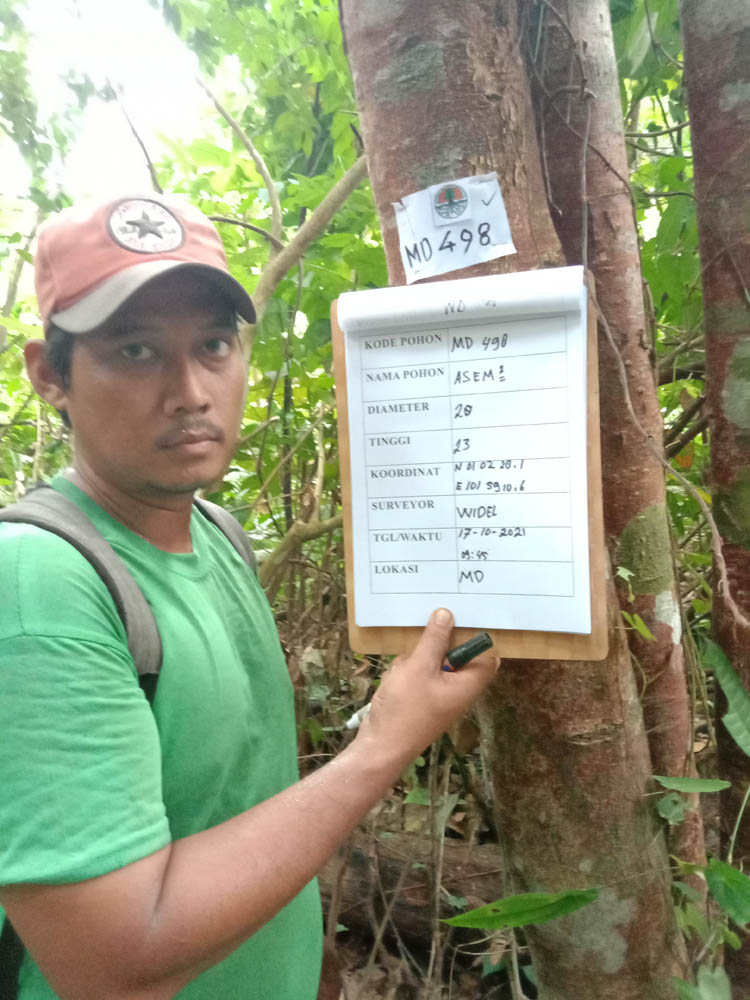 MD 498
KODE POHON MD 498
NAMA POHON ASEM²
DIAMETER 20
TINGGI 23
KOORDINAT N 01 02 28.1
E 101 5910.6
SURVEYOR WIDEL
TGL/WAKTU 17-10-2021
09:45
LOKASI MD